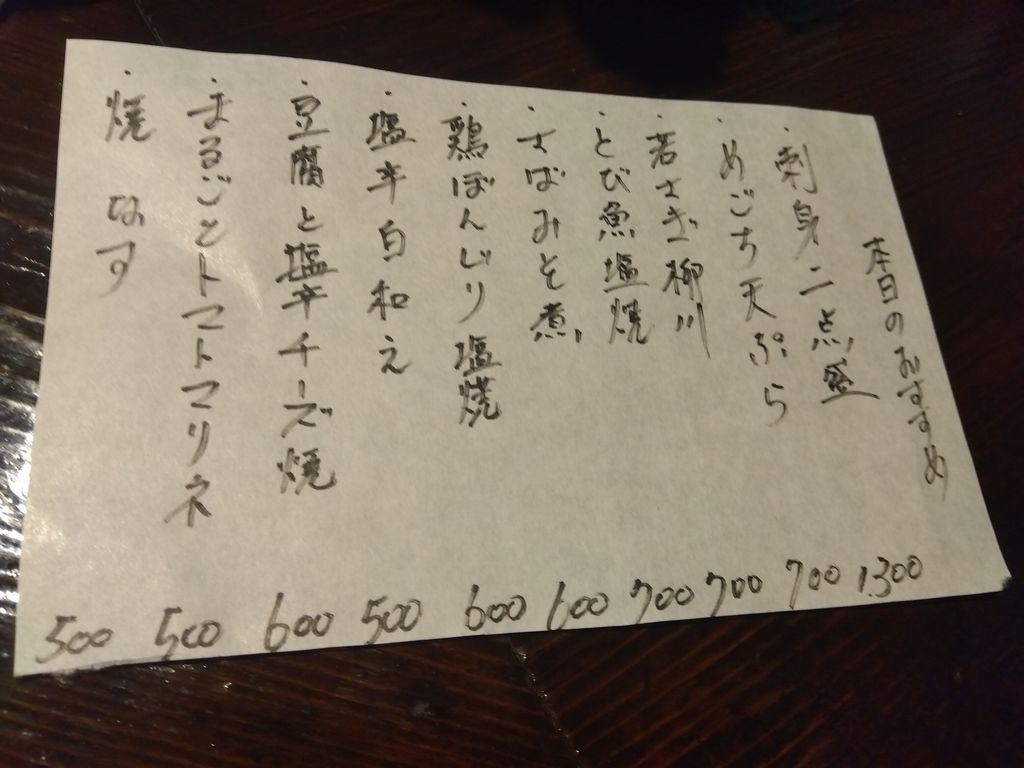 本日のおすすめ
・刺身二点盛 1300
・めごち天ぷら 700
・若さぎ柳川 700
・とび魚塩焼 700
・さばみそ煮 600
・鶏ぼんじり塩焼 600
・塩辛白和え 500
・豆腐と塩辛チーズ焼 600
・まるごとトマトマリネ 500
・焼なす 500